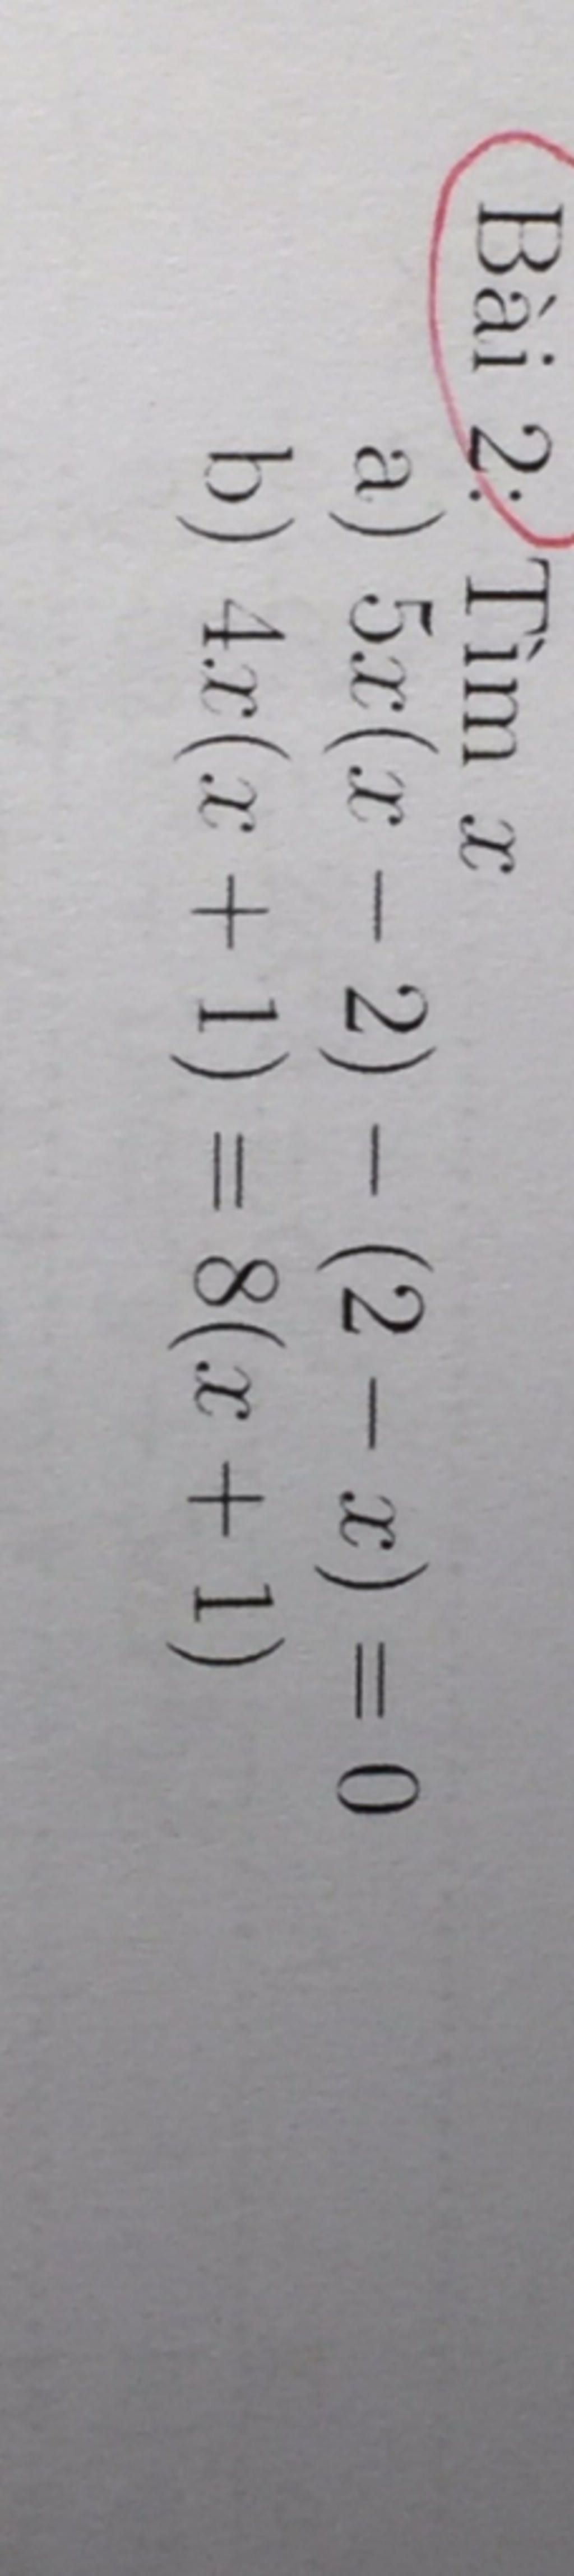 Bài 2: Tìm x
a) 5x(x − 2) − (2 − x) = 0
b) 4x(x + 1) = 8(x + 1)